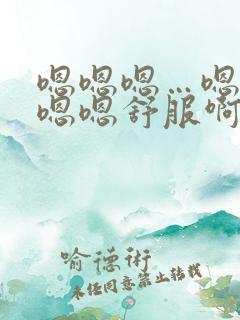 嗯嗯嗯…嗯
嗯嗯舒服啊
喻德術
未经同意禁止转载